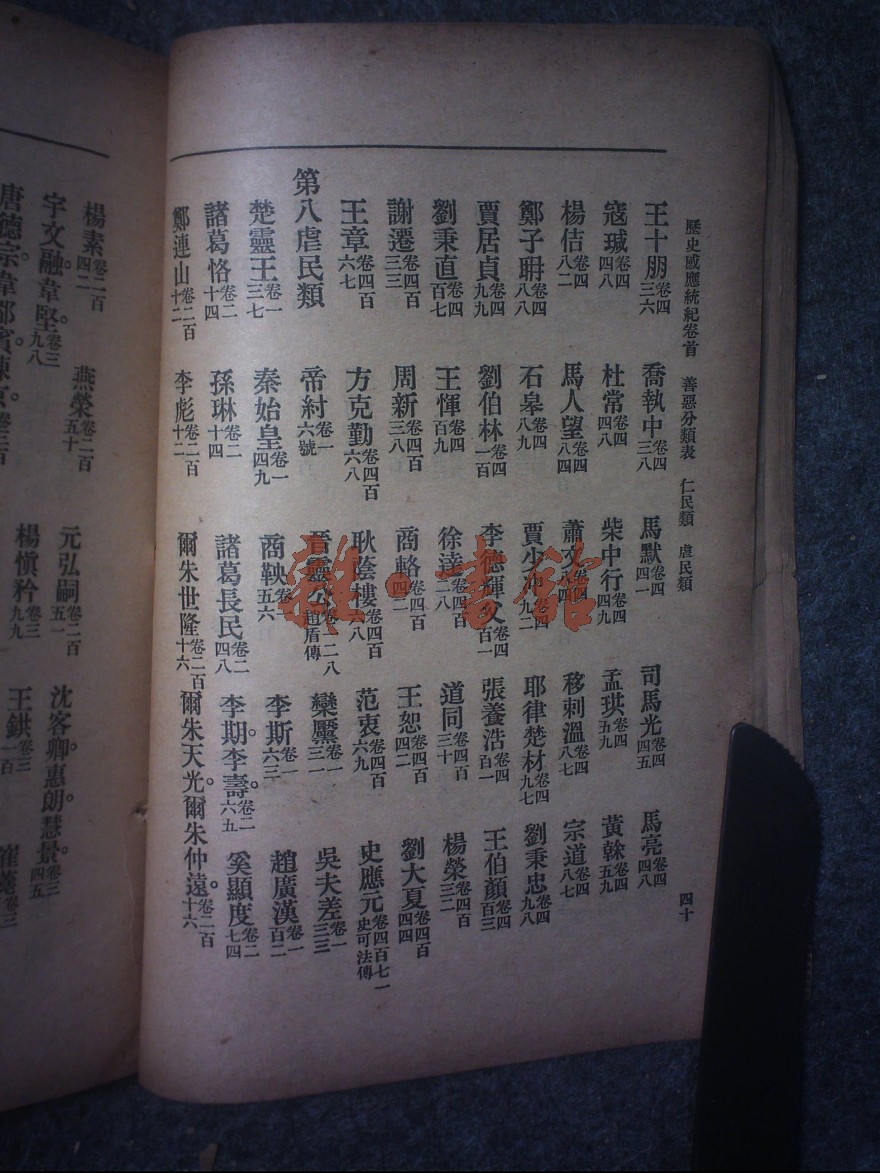 歷史感應統紀卷首　善惡分類表　仁民類　虐民類　四十
王十朋卷四三六　喬執中卷四三八　馬默卷四四一　司馬光卷四四五　馬亮卷四四八
寇瑊卷四四八　杜常卷四四八　柴中行卷四四九　孟珙卷四五九　黃榦卷四五九
楊佶卷四八二　馬人望卷四八四　蕭文卷四　移剌溫卷四八七　宗道卷四八七
鄭子聃卷四八八　石皋卷四八九　賈少冲卷四九二　耶律楚材卷四九七　劉秉忠卷四九八
賈居貞卷四九九　劉伯林卷四一百　李德輝父卷四百一　張養浩卷四百一　王伯顏卷四百三
劉秉直卷四百七　王惲卷四百九　徐逵卷四百二八　道同卷四百三十　楊榮卷四百三二
謝遷卷四百三三　周新卷四百三八　商輅卷四百四二　王恕卷四百四二　劉大夏卷四百四四
王章卷四百六七　方克勤卷四百六八　耿蔭樓卷四百六八　范衷卷四百六九　史應元卷四百七一史可法傳
第八虐民類　帝紂卷一六號　晉靈公卷一二八趙盾傳　欒黶卷一三一　吳夫差卷一三三
楚靈王卷一三七　秦始皇卷一四九　商鞅卷一五六　李斯卷一六三　趙廣漢卷一百二
諸葛恪卷二十四　孫琳卷二十四　諸葛長民卷二四八　李期。李壽。卷二六五　奚顯度卷二七四
鄭連山卷二百十二　李彪卷二百十二　爾朱世隆卷二百十六　爾朱天光。爾朱仲遠。卷二百十六
楊素卷二百四二　燕榮卷二百五十　元弘嗣卷二百五一　沈客卿。惠朗。慧景。卷三四五
宇文融。韋堅。卷三九八　楊愼矜卷三九九　王鉷卷三一百　崔 卷三
唐德宗。韋都賓。陳京。卷三百
雜·書館